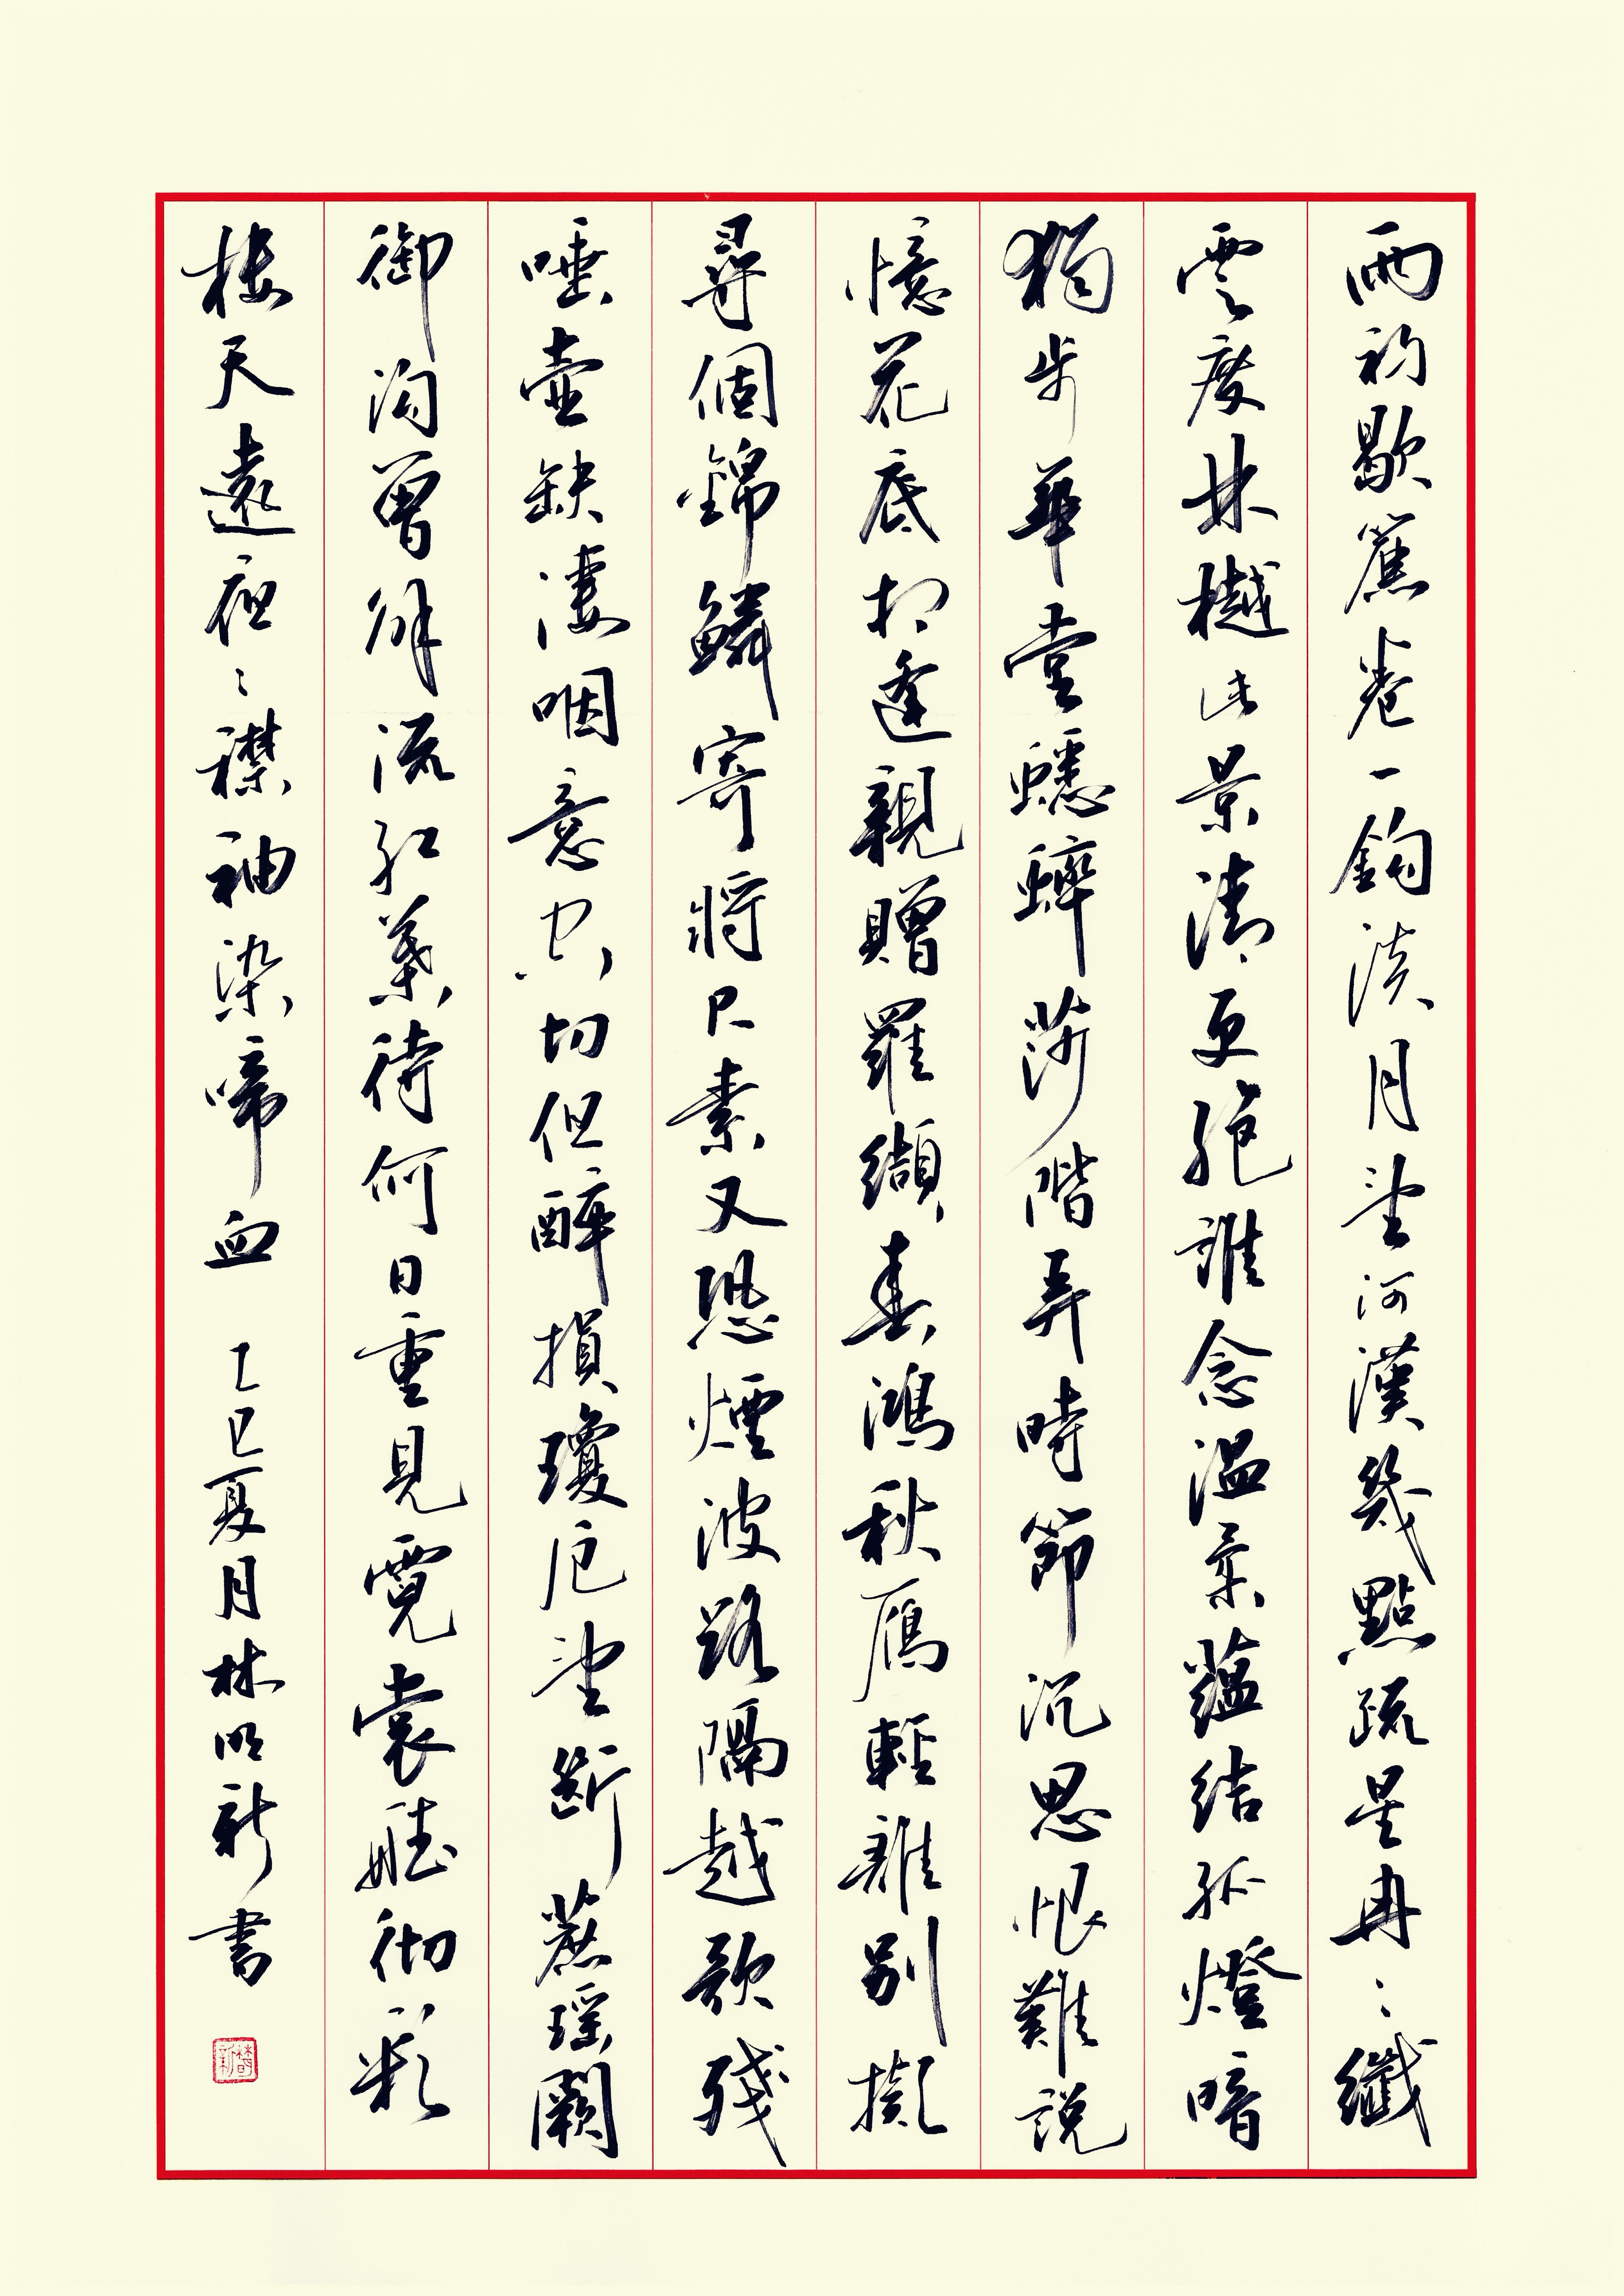 雨初歇簾卷一鈎淡月望河漢幾點疏星冉冉纖
雲度林樾此景清更絕誰念溫柔蘊結孤燈暗
獨步華堂蟋蟀莎階弄時節沉思恨難說
憶花底相逢親贈羅纈春鴻秋雁輕離別擬
尋個錦鱗寄將尺素又恐煙波路隔越歌殘
唾壺缺淒咽意空切但醉損瓊卮望斷蔗瑤闕
御溝曾解流紅葉待何日重見霓裳聽徹彩
樓天遠夜夜襟袖染啼血
乙巳夏月林明新書